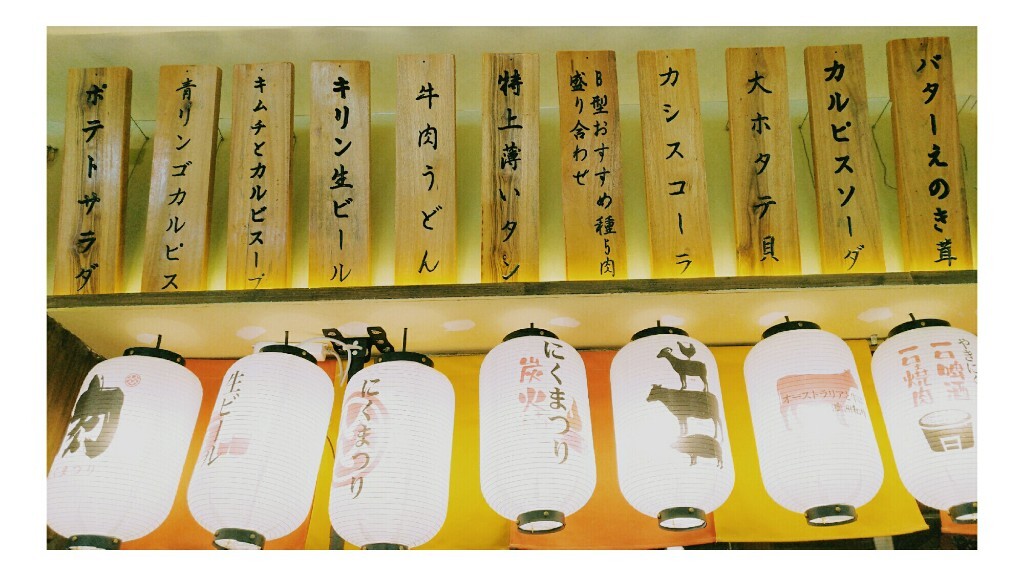 ポテトサラダ
青リンゴカルピス
キムチとカルビスープ
キリン生ビール
牛肉うどん
特上薄いタン
B型おすすめ種ち肉
盛り合わせ
カシスコーラ
大ホタテ貝
カルピスソーダ
バターえのき茸
まつり
生ビール
にくまつり
にくまつり
炭火
オーストラリア
やきにく
石焼肉